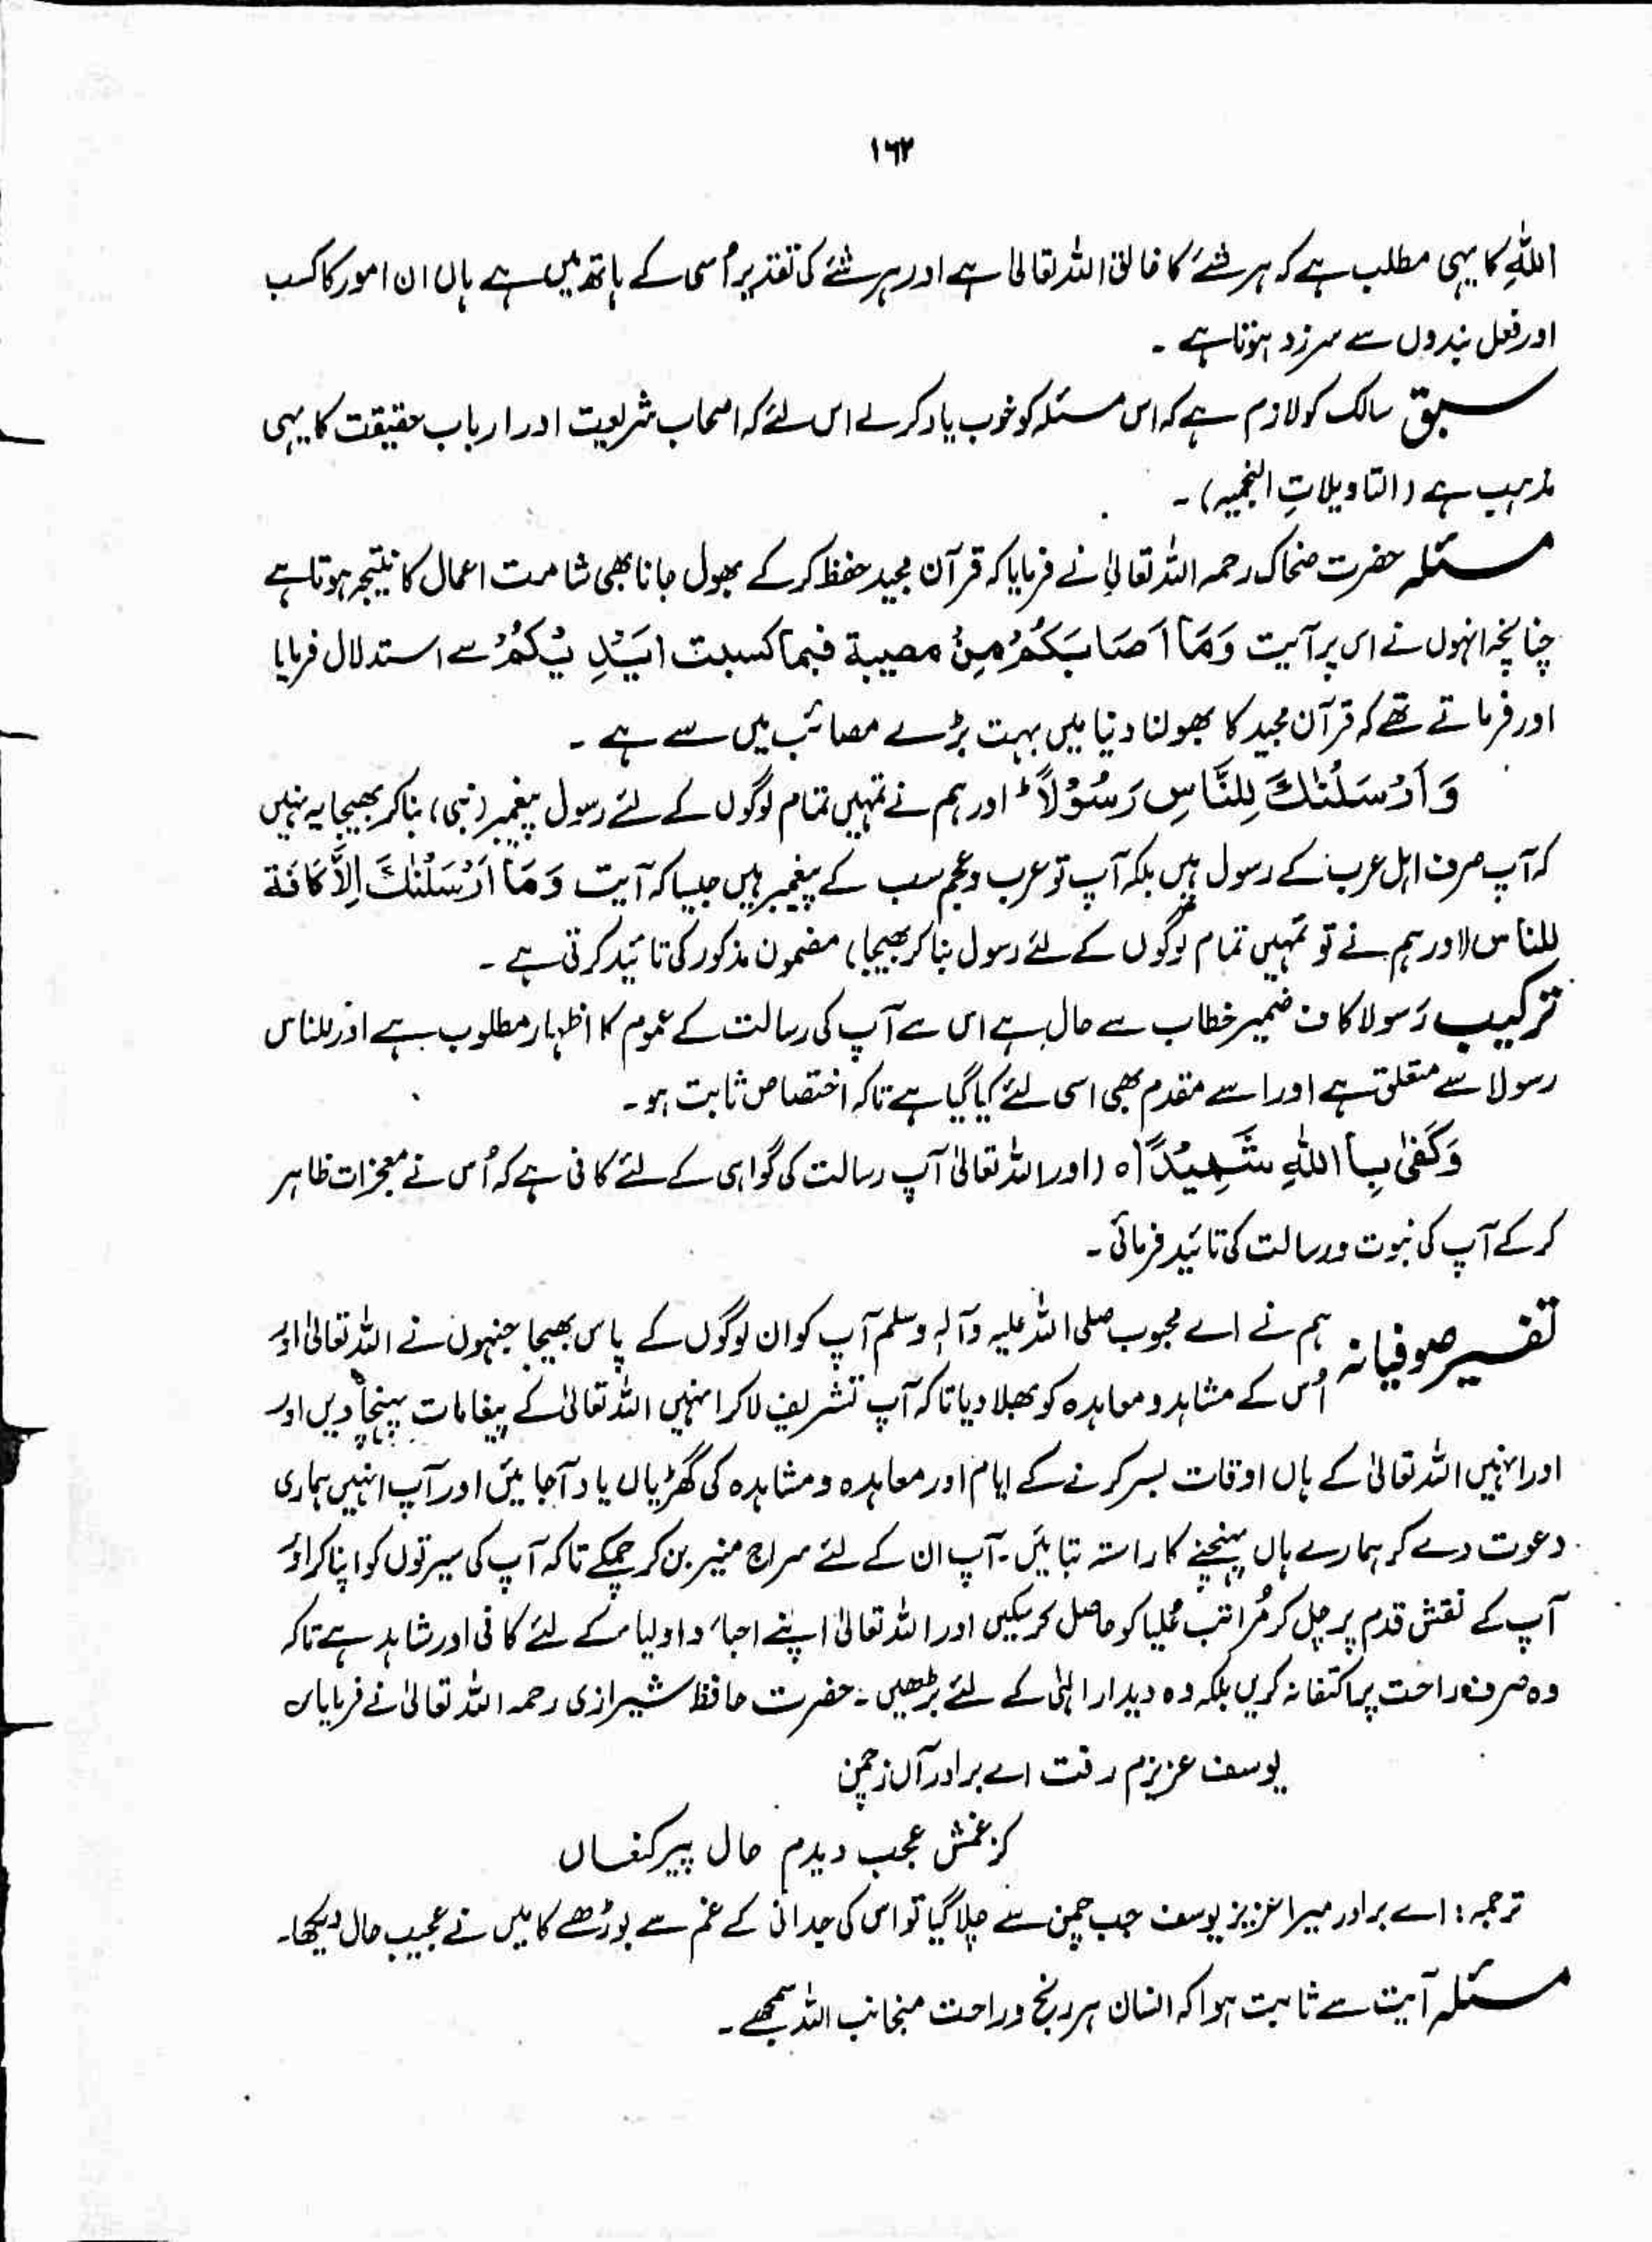 ۱۶۲
اللہِ کا یہی مطلب ہے کہ ہر شئے کا خالق اللہ تعالیٰ ہے اور ہر شئے کی تقدیر اُسی کے ہاتھ میں ہے ہاں ان امور کا کسب
اور فعل بندوں سے سرزد ہوتا ہے ۔
سبق سالک کو لازم ہے کہ اس مسئلہ کو خوب یاد کرلے اس لئے کہ اصحاب شریعت اور ارباب حقیقت کا یہی
مذہب ہے (التاویلاتِ النجمیہ) ۔
مسئلہ حضرت ضحاک رحمہ اللہ تعالیٰ نے فرمایا کہ قرآن مجید حفظ کرکے بھول جانا بھی شامت اعمال کا نتیجہ ہوتا ہے
چنانچہ انہوں نے اس پر آیت وَمَا اَصَابَكُمْ مِنْ مصیبة فبما کسبت اَیْدِیْكُمْ سے استدلال فرمایا
اور فرماتے تھے کہ قرآن مجید کا بھولنا دنیا میں بہت بڑے مصائب میں سے ہے ۔
وَ اَرْسَلْنٰكَ لِلنَّاسِ رَسُوْلاً ؕ اور ہم نے تمہیں تمام لوگوں کے لئے رسول پیغمبر (نبی) بنا کر بھیجا یہ نہیں
کہ آپ صرف اہل عرب کے رسول ہیں بلکہ آپ تو عرب و عجم سب کے پیغمبر ہیں جیسا کہ آیت وَمَا اَرْسَلْنٰكَ اِلاَّ كَافَة
للناس (اور ہم نے تو تمہیں تمام لوگوں کے لئے رسول بنا کر بھیجا) مضمون مذکور کی تائید کرتی ہے ۔
ترکیب رَسولا کاف ضمیر خطاب سے حال ہے اس سے آپ کی رسالت کے عموم کا اظہار مطلوب ہے اور للناس
رسولا سے متعلق ہے اور اسے مقدم بھی اسی لئے کیا گیا ہے تاکہ اختصاص ثابت ہو ۔
وَكَفٰى بِاللهِ شَهِيْدًا ہ (اور اللہ تعالیٰ آپ رسالت کی گواہی کے لئے کافی ہے کہ اُس نے معجزات ظاہر
کرکے آپ کی نبوت و رسالت کی تائید فرمائی ۔
تفسیر صوفیانہ ہم نے اے محبوب صلی اللہ علیہ وآلہٖ وسلم آپ کو ان لوگوں کے پاس بھیجا جنہوں نے اللہ تعالیٰ اور
اُس کے مشاہد و معاہدہ کو بھلا دیا تاکہ آپ تشریف لاکر انہیں اللہ تعالیٰ کے پیغامات پہنچا دیں اور
اور انہیں اللہ تعالیٰ کے ہاں اوقات بسر کرنے کے ایام اور معاہدہ و مشاہدہ کی گھڑیاں یاد آجائیں اور آپ انہیں ہماری
دعوت دے کر ہمارے ہاں پہنچنے کا راستہ بتائیں ۔ آپ ان کے لئے سراج منیر بن کر چمکے تاکہ آپ کی سیرتوں کو اپنا کر اور
آپ کے نقش قدم پر چل کر مُراتب عُلیا کو حاصل کرسکیں اور اللہ تعالیٰ اپنے احباء و اولیاء کے لئے کافی اور شاہد ہے تاکہ
وہ صرف راحت پر اکتفا نہ کریں بلکہ وہ دیدار الہٰی کے لئے بڑھیں ۔ حضرت حافظ شیرازی رحمہ اللہ تعالیٰ نے فرمایا
یوسف عزیزم رفت اے برادر آں زچمن
کز غمش عجب دیدم حال پیر کنعاں
ترجمہ : اے برادر میرا عزیز یوسف جب چمن سے چلا گیا تو اس کی جدائی کے غم سے بوڑھے کا میں نے عجیب حال دیکھا ۔
مسئلہ آیت سے ثابت ہوا کہ انسان ہر رنج و راحت منجانب اللہ سمجھے ۔